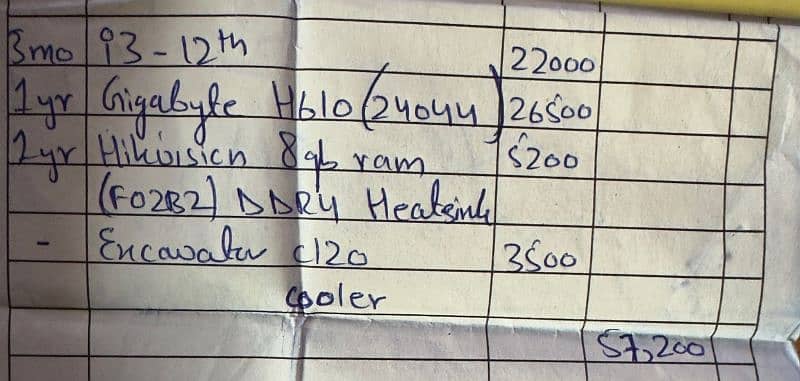 3mo i3-12th 22000
1yr Gigabyte H610 (24044) 26500
1yr Hikvision 8gb ram 5200
(F02B2) DDR4 Heatsink
- Encavator C120 3500
cooler
57,200